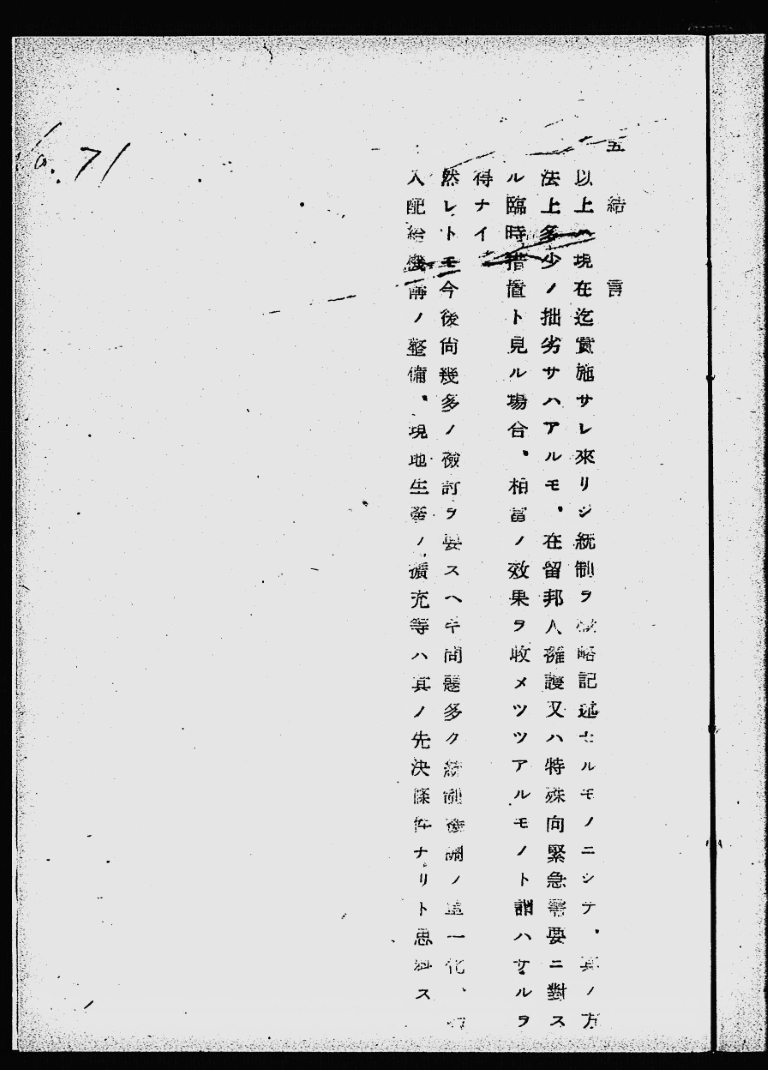 No. 71
五 結 言
以上ハ現在迄實施サレ來リシ統制ヲ概略記述セルモノニシテ、其ノ方
法上多少ノ拙劣サハアルモ、在留邦人擁護又ハ特殊向緊急需要ニ對ス
ル臨時措置ト見ル場合、相當ノ效果ヲ收メツツアルモノト謂ハサルヲ
得ナイ
然レトモ今後尚幾多ノ檢討ヲ要スヘキ問題多ク統制機關ノ單一化、
入配給機構ノ整備、現地生産ノ擴充等ハ其ノ先決條件ナリト思料ス